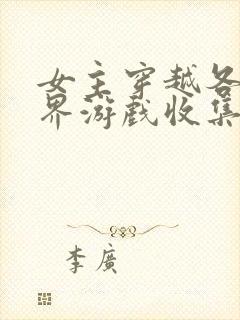 女主穿越各
界游戏收集
李廣